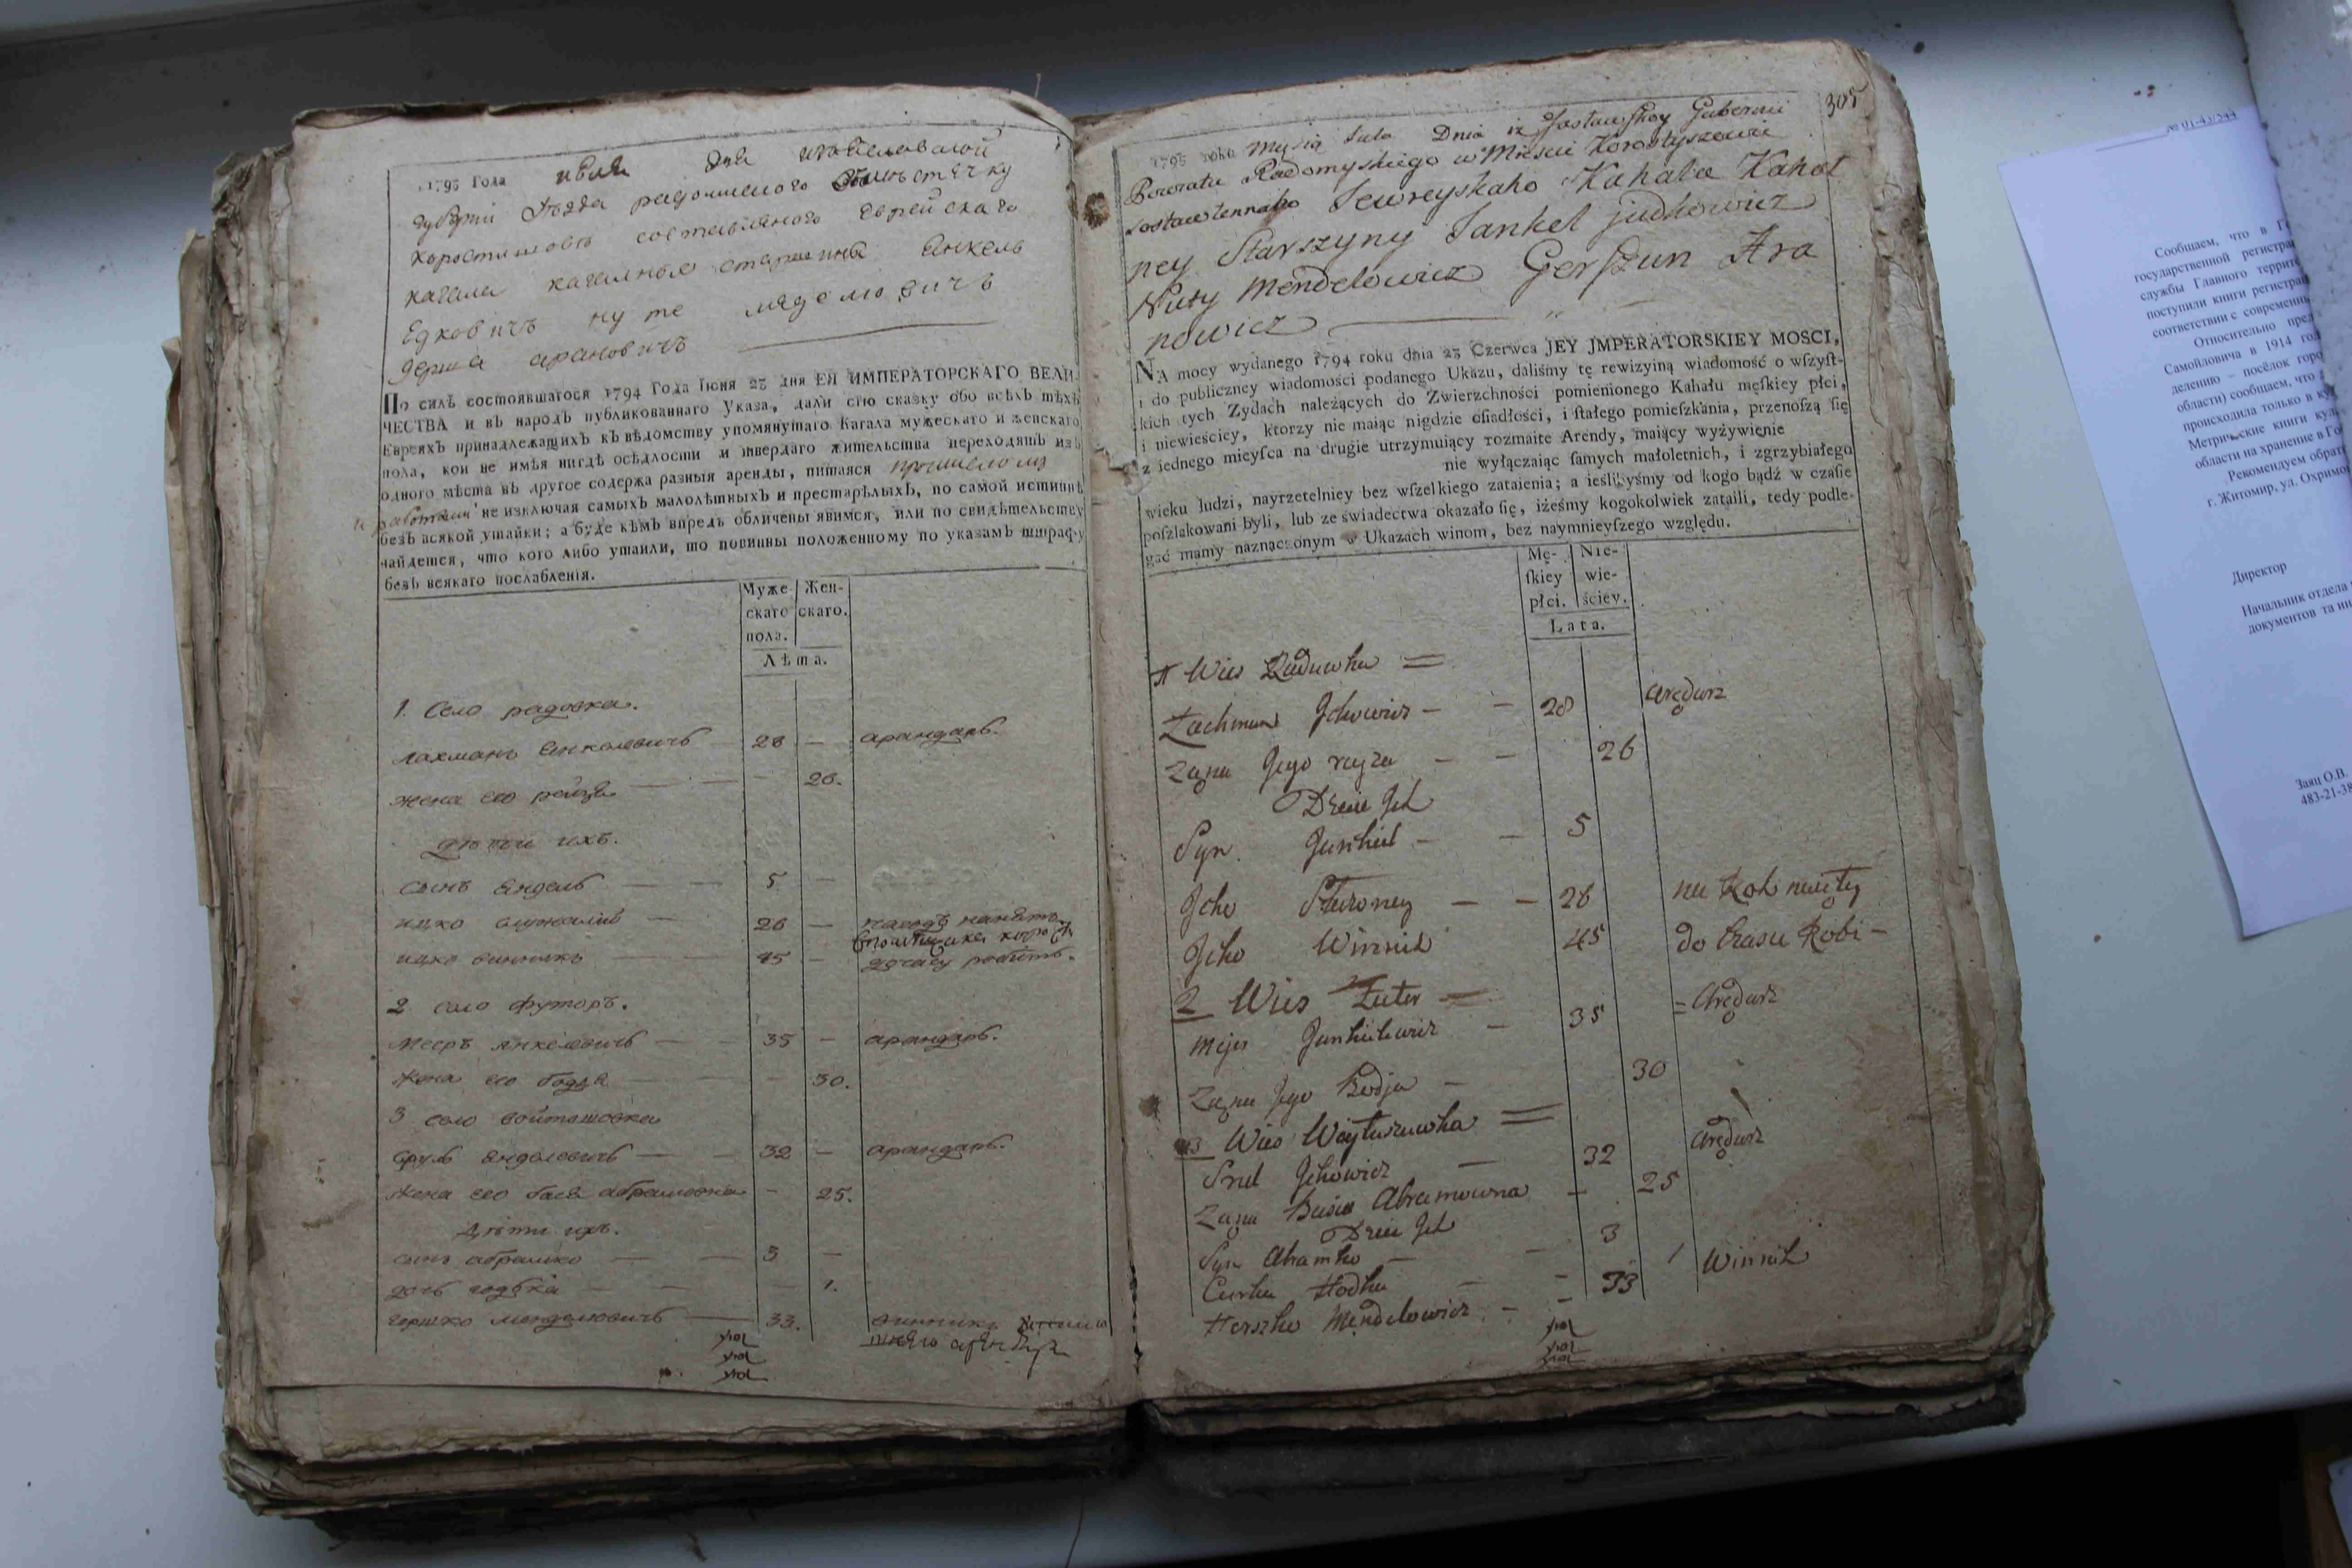 1795 Года июля дня изъяславской
губерніи уѣзда радомислого мѣстечку
коростишовъ составленого еврейскаго
кагала кагалные старшины Янкель
Едковичъ нуте мяделювичъ
герша арановичъ
По силѣ состоявшагося 1794 Года Іюня 23 дня ЕЯ ИМПЕРАТОРСКАГО ВЕЛИ-
ЧЕСТВА и въ народъ публикованнаго Указа, дали сію сказку обо всѣхъ тѣхъ
Евреяхъ принадлежащихъ къ вѣдомству упомянутаго Кагала мужескаго и женскаго
пола, кои не имѣя нигдѣ осѣдлости и твердаго жительства переходятъ изъ
одного мѣста въ другое содержа разныя аренды, питаяся
и работами не изключая самыхъ малолѣтныхъ и престарѣлыхъ, по самой истиннѣ
безъ всякой утайки; а буде кѣмъ впредь обличены явимся, или по свидѣтельству
найдется, что кого либо утаили, то повинны положенному по указамъ штрафу
безъ всякаго послабленія.
Муже- Жен-
скаго скаго.
пола.
Лѣта.
1. Село радовка.
лахманъ Янкелевичъ — 28 — арандаръ.
жена его рейза — — 26.
дѣти ихъ.
сынъ Яндель — — 5 —
ицко служалій — 26 —
ицко винникъ — — 45 — до часу робитъ.
2 село футоръ.
мееръ янкелевичъ — 35 — арандаръ.
жена его бодзя — — 30.
3 село войташовка
сруль Яндолевичъ — 32 — арандаръ.
жена его бася абрамовна — 25.
Дѣти ихъ.
сынъ абрамко — — 3 —
дочь годька — — 1.
гершко менделювичъ — 33. винникъ
305
1795 roku Dnia iz Jasławskoy Gubernii
Powiatu Radomyskiego w Mieście Korostyszewie
sostawlennaho Jewreyskaho Kahała Kahal
ney Starszyny Jankel judkowicz
Nuty Mendelowicz Gerszun Ara
nowicz
NA mocy wydanego 1794 roku dnia 23 Czerwca JEY JMPERATORSKIEY MOSCI,
i do publiczney wiadomości podanego Ukazu, daliśmy tę rewizyiną wiadomość o wſzyſt-
kich tych Zydach należących do Zwierzchności pomienionego Kahału męſkiey płci,
i niewieściey, ktorzy nie maiąc nigdzie oſiadłości, i ſtałego pomieſzkania, przenoſzą ſię
z iednego mieyſca na drugie utrzymuiący rozmaite Arendy, maiący wyżywienie
nie wyłączaiąc ſamych małoletnich, i zgrzybiałego
wieku ludzi, nayrzetelniey bez wſzelkiego zataienia; a ieślibyśmy od kogo bądź w czaſie
poſzlakowani byli, lub ze świadectwa okazało ſię, iżeśmy kogokolwiek zataili, tedy podle-
gać mamy naznaczonym w Ukazach winom, bez naymnieyſzego względu.
Mę- Nie-
ſkiey wie-
płci. ściey.
Lata.
1 Wies Raduwka =
Lachman Jckowicz — — 28 Arędarz
Ząna Jego rayza — — 26
Dzieci Jch
Syn Jankiel — — 5
Jcko — — 26 na Rok naięty
Jcko Winnik 45 do Czasu Robi —
2 Wies Futer =
Mejer Jankielowicz — 35 = Arędarz
Zągna Jego Bodja — 30
3 Wies Wojtuszuwka =
Srul Jckowicz — 32 Arędarz
Ząna Basia Abramowna — 25
Dzieci Jch
Syn Abramko — — 3
Curka Hodka — — 1
Herszko Mendelowicz — — 33 Winnik
№ 01-43/544
Сообщаем, что в Го
государственной регистрац
службы Главного террито
поступили книги регистрац
соответствии с современны
Относительно пред
Самойловича в 1914 год
делению – посёлок горо
области) сообщаем, что
происходила только в
Метрические книги
области на хранение в Го
Рекомендуем обрат
г. Житомир, ул. Охримо
Директор
Начальник отдела
документов та
Заяц О.В.
483-21-38